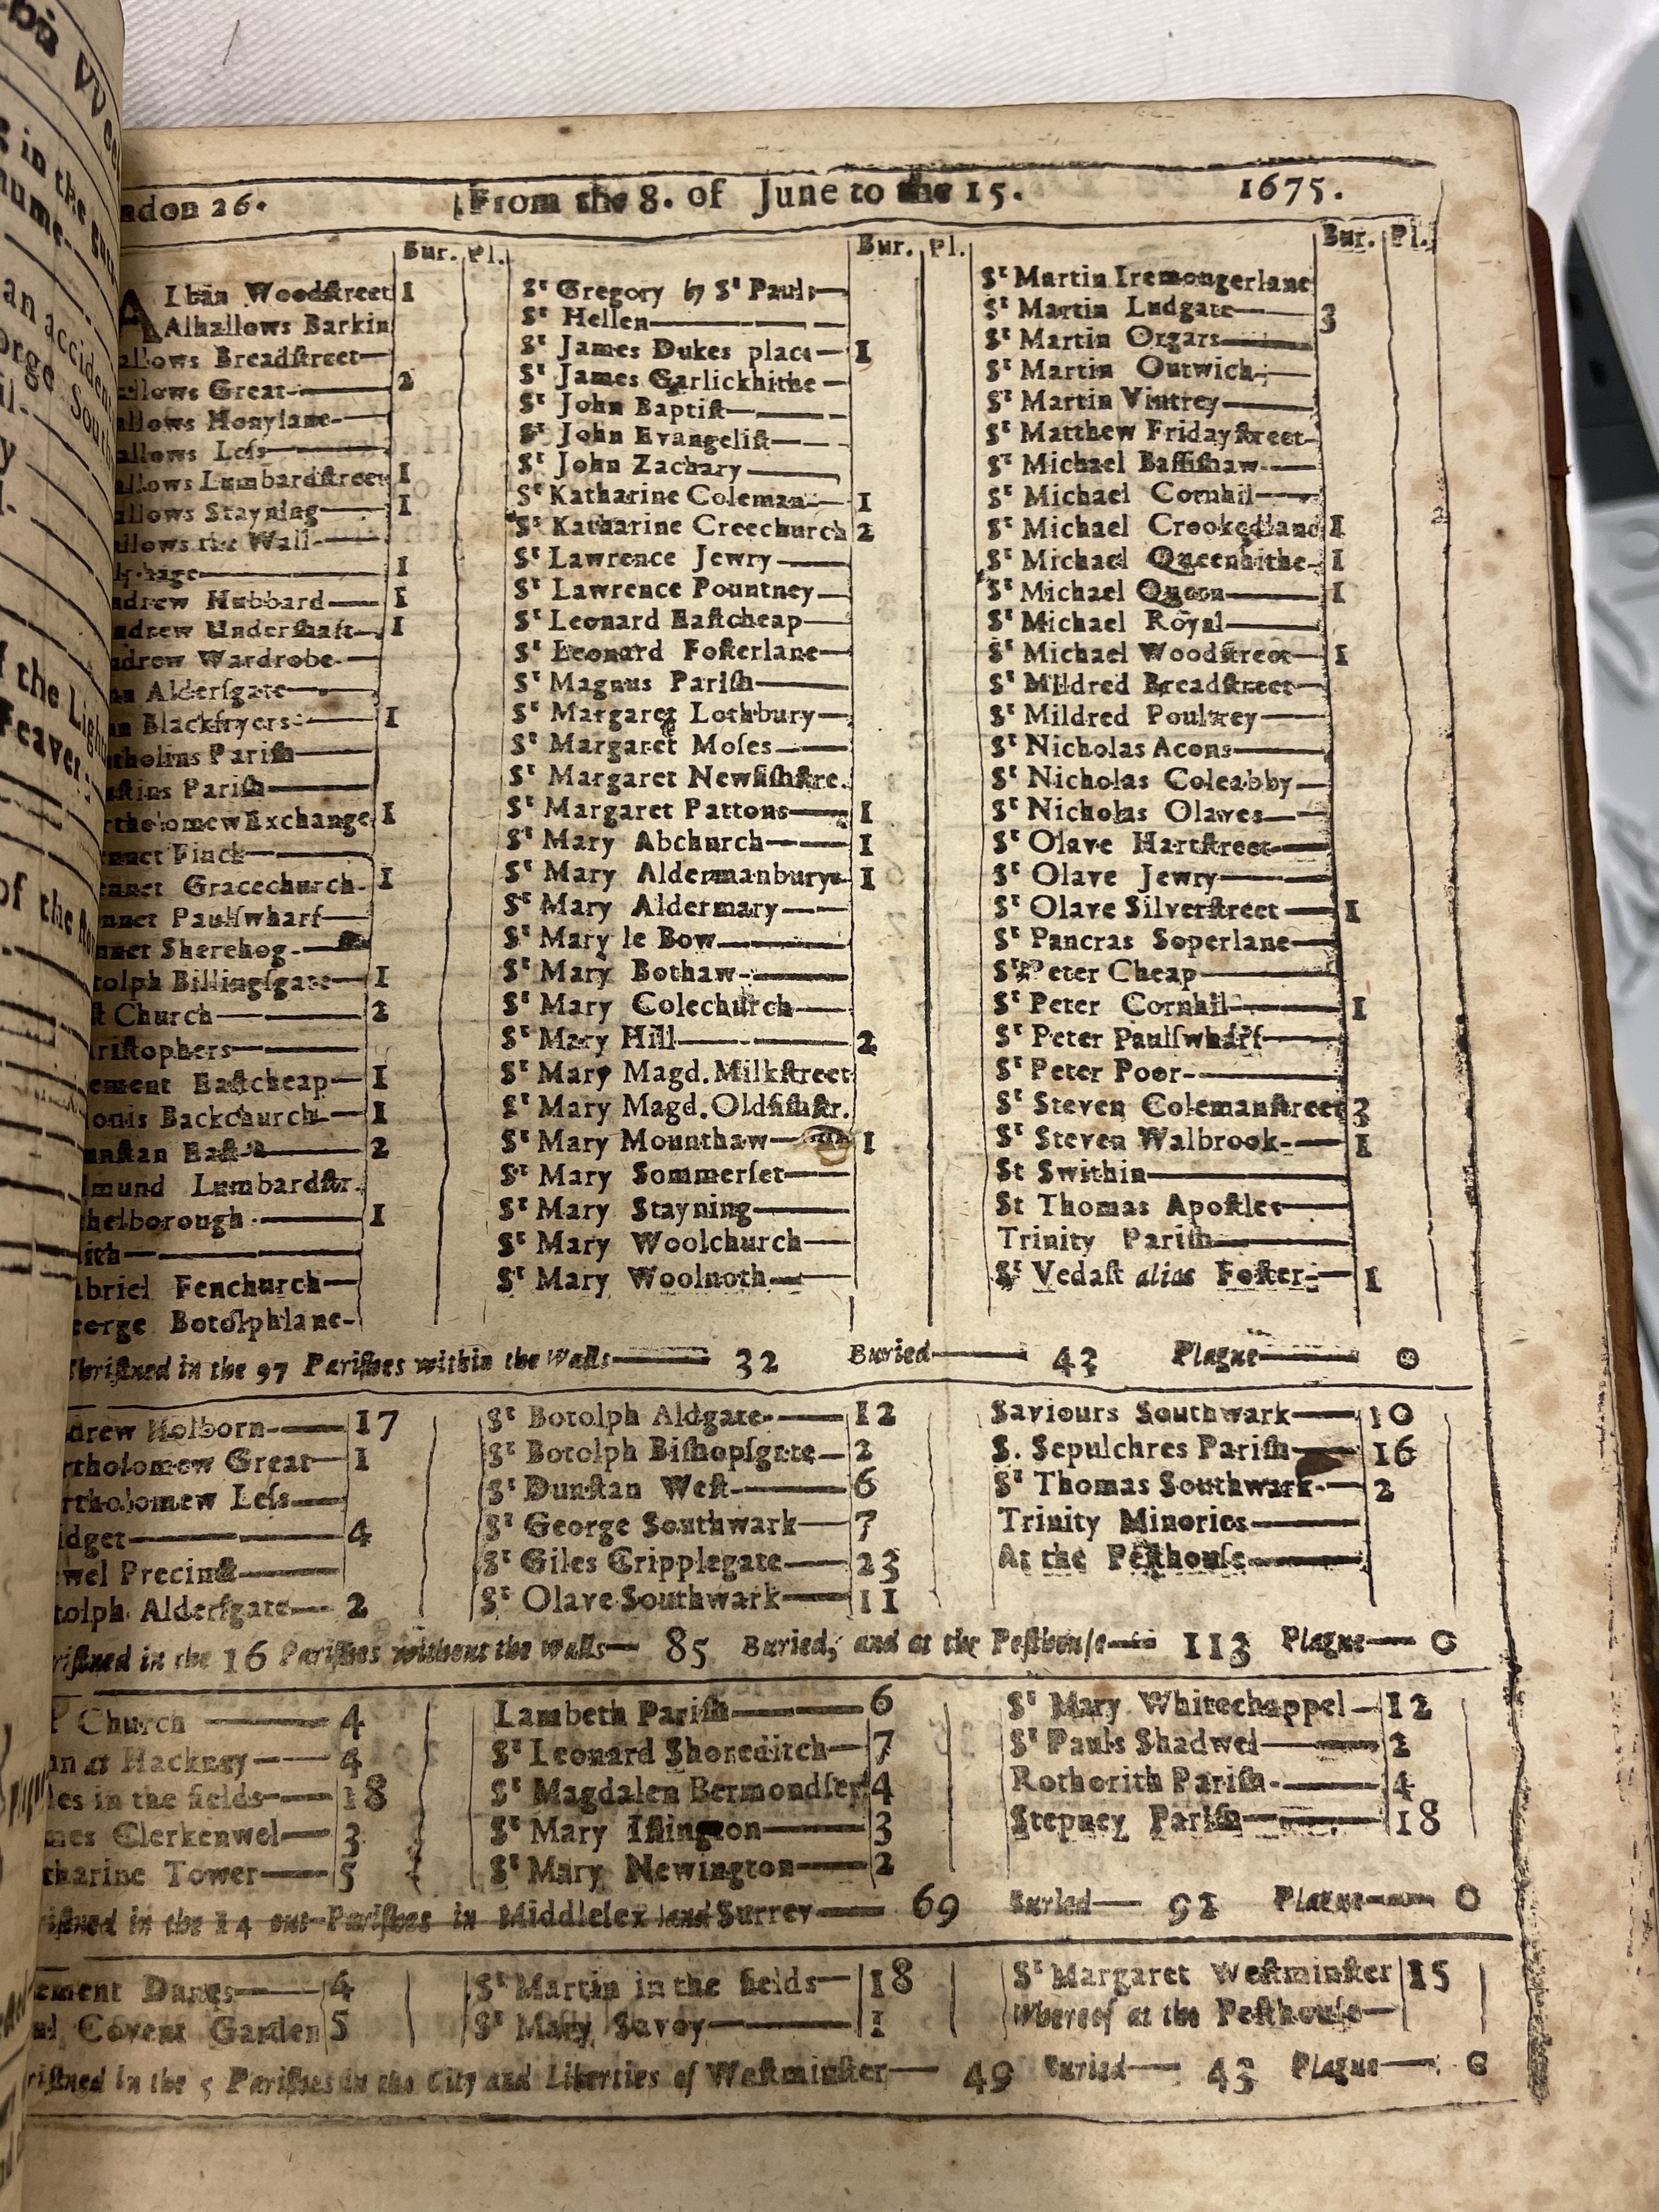 ndon 26. From the 8. of June to the 15. 1675.
Bur. Pl.
Alban Woodſtreet 1
Alhallows Barkin
allows Breadſtreet—
allows Great— 2
allows Honylane—
allows Leſs—
allows Lumbardſtreet 1
allows Stayning— 1
allows the Wall—
phage— 1
ndrew Hubbard— 1
ndrew Underſhaft— 1
ndrew Wardrobe—
nn Alderſgate—
nn Blackfryers— 1
tholins Pariſh—
ſtins Pariſh—
rtholomew Exchange 1
ennet Finck—
ennet Gracechurch— 1
ennet Paulſwharf—
ennet Sherehog—
tolph Billingſgate— 1
ſt Church— 2
riſtophers—
ement Eaſtcheap— 1
onis Backchurch— 1
unſtan Eaſt— 2
dmund Lumbardſtr.
thelborough— 1
aith—
abriel Fenchurch—
eorge Botolphlane—
Bur. Pl.
Sᵗ Gregory by Sᵗ Pauls—
Sᵗ Hellen—
Sᵗ James Dukes place— 1
Sᵗ James Garlickhithe—
Sᵗ John Baptiſt—
Sᵗ John Evangeliſt—
Sᵗ John Zachary—
Sᵗ Katharine Coleman— 1
Sᵗ Katharine Creechurch 2
Sᵗ Lawrence Jewry—
Sᵗ Lawrence Pountney—
Sᵗ Leonard Eaſtcheap—
Sᵗ Leonard Foſterlane—
Sᵗ Magnus Pariſh—
Sᵗ Margaret Lothbury—
Sᵗ Margaret Moſes—
Sᵗ Margaret Newfiſhſtre.
Sᵗ Margaret Pattons— 1
Sᵗ Mary Abchurch— 1
Sᵗ Mary Aldermanbury— 1
Sᵗ Mary Aldermary—
Sᵗ Mary le Bow—
Sᵗ Mary Bothaw—
Sᵗ Mary Colechurch—
Sᵗ Mary Hill— 2
Sᵗ Mary Magd. Milkſtreet
Sᵗ Mary Magd. Oldfiſhſtr.
Sᵗ Mary Mounthaw— 1
Sᵗ Mary Sommerſet—
Sᵗ Mary Stayning—
Sᵗ Mary Woolchurch—
Sᵗ Mary Woolnoth—
Bur. Pl.
Sᵗ Martin Iremongerlane
Sᵗ Martin Ludgate— 3
Sᵗ Martin Orgars—
Sᵗ Martin Outwich—
Sᵗ Martin Vintrey—
Sᵗ Matthew Fridayſtreet—
Sᵗ Michael Baſſiſhaw—
Sᵗ Michael Cornhil—
Sᵗ Michael Crookedlane 1
Sᵗ Michael Queenhithe— 1
Sᵗ Michael Queen— 1
Sᵗ Michael Royal—
Sᵗ Michael Woodſtreet— 1
Sᵗ Mildred Breadſtreet—
Sᵗ Mildred Poultrey—
Sᵗ Nicholas Acons—
Sᵗ Nicholas Coleabby—
Sᵗ Nicholas Olaves—
Sᵗ Olave Hartſtreet—
Sᵗ Olave Jewry—
Sᵗ Olave Silverſtreet— 1
Sᵗ Pancras Soperlane—
Sᵗ Peter Cheap—
Sᵗ Peter Cornhil— 1
Sᵗ Peter Paulſwharf—
Sᵗ Peter Poor—
Sᵗ Steven Colemanſtreet 3
Sᵗ Steven Walbrook— 1
St Swithin—
St Thomas Apoſtle—
Trinity Pariſh—
Sᵗ Vedaſt alias Foſter— 1
Chriſtned in the 97 Pariſhes within the Walls— 32 Buried— 43 Plague— 0
drew Holborn— 17
rtholomew Great— 1
rtholomew Leſs—
idget— 4
ewel Precinct—
tolph Alderſgate— 2
Sᵗ Botolph Aldgate— 12
Sᵗ Botolph Biſhopſgate— 2
Sᵗ Dunſtan Weſt— 6
Sᵗ George Southwark— 7
Sᵗ Giles Cripplegate— 23
Sᵗ Olave Southwark— 11
Saviours Southwark— 10
S. Sepulchres Pariſh— 16
Sᵗ Thomas Southwark— 2
Trinity Minories—
At the Peſthouſe—
riſtned in the 16 Pariſhes without the Walls— 85 Buried, and at the Peſthouſe— 113 Plague— 0
Church— 4
hn at Hackney— 4
les in the fields— 18
mes Clerkenwel— 3
tharine Tower— 5
Lambeth Pariſh— 6
Sᵗ Leonard Shoreditch— 7
Sᵗ Magdalen Bermondſey 4
Sᵗ Mary Iſlington— 3
Sᵗ Mary Newington— 2
Sᵗ Mary Whitechappel— 12
Sᵗ Pauls Shadwel— 2
Rothorith Pariſh— 4
Stepney Pariſh— 18
riſtned in the 14 out-Pariſhes in Middleſex and Surrey— 69 Buried— 92 Plague— 0
ement Danes— 4
ul Covent Garden 5
Sᵗ Martin in the fields— 18
Sᵗ Mary Savoy— 1
Sᵗ Margaret Weſtminſter 15
Whereof at the Peſthouſe—
riſtned in the 5 Pariſhes in the City and Liberties of Weſtminſter— 49 Buried— 43 Plague— 0